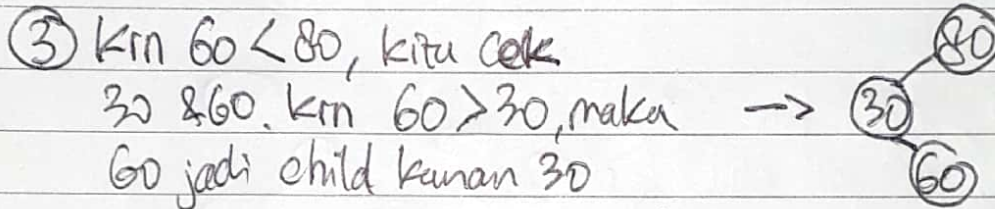 ③ Krn 60 < 80, kita cek 80
30 & 60. Krn 60 > 30, maka → 30
60 jadi child kanan 30 60